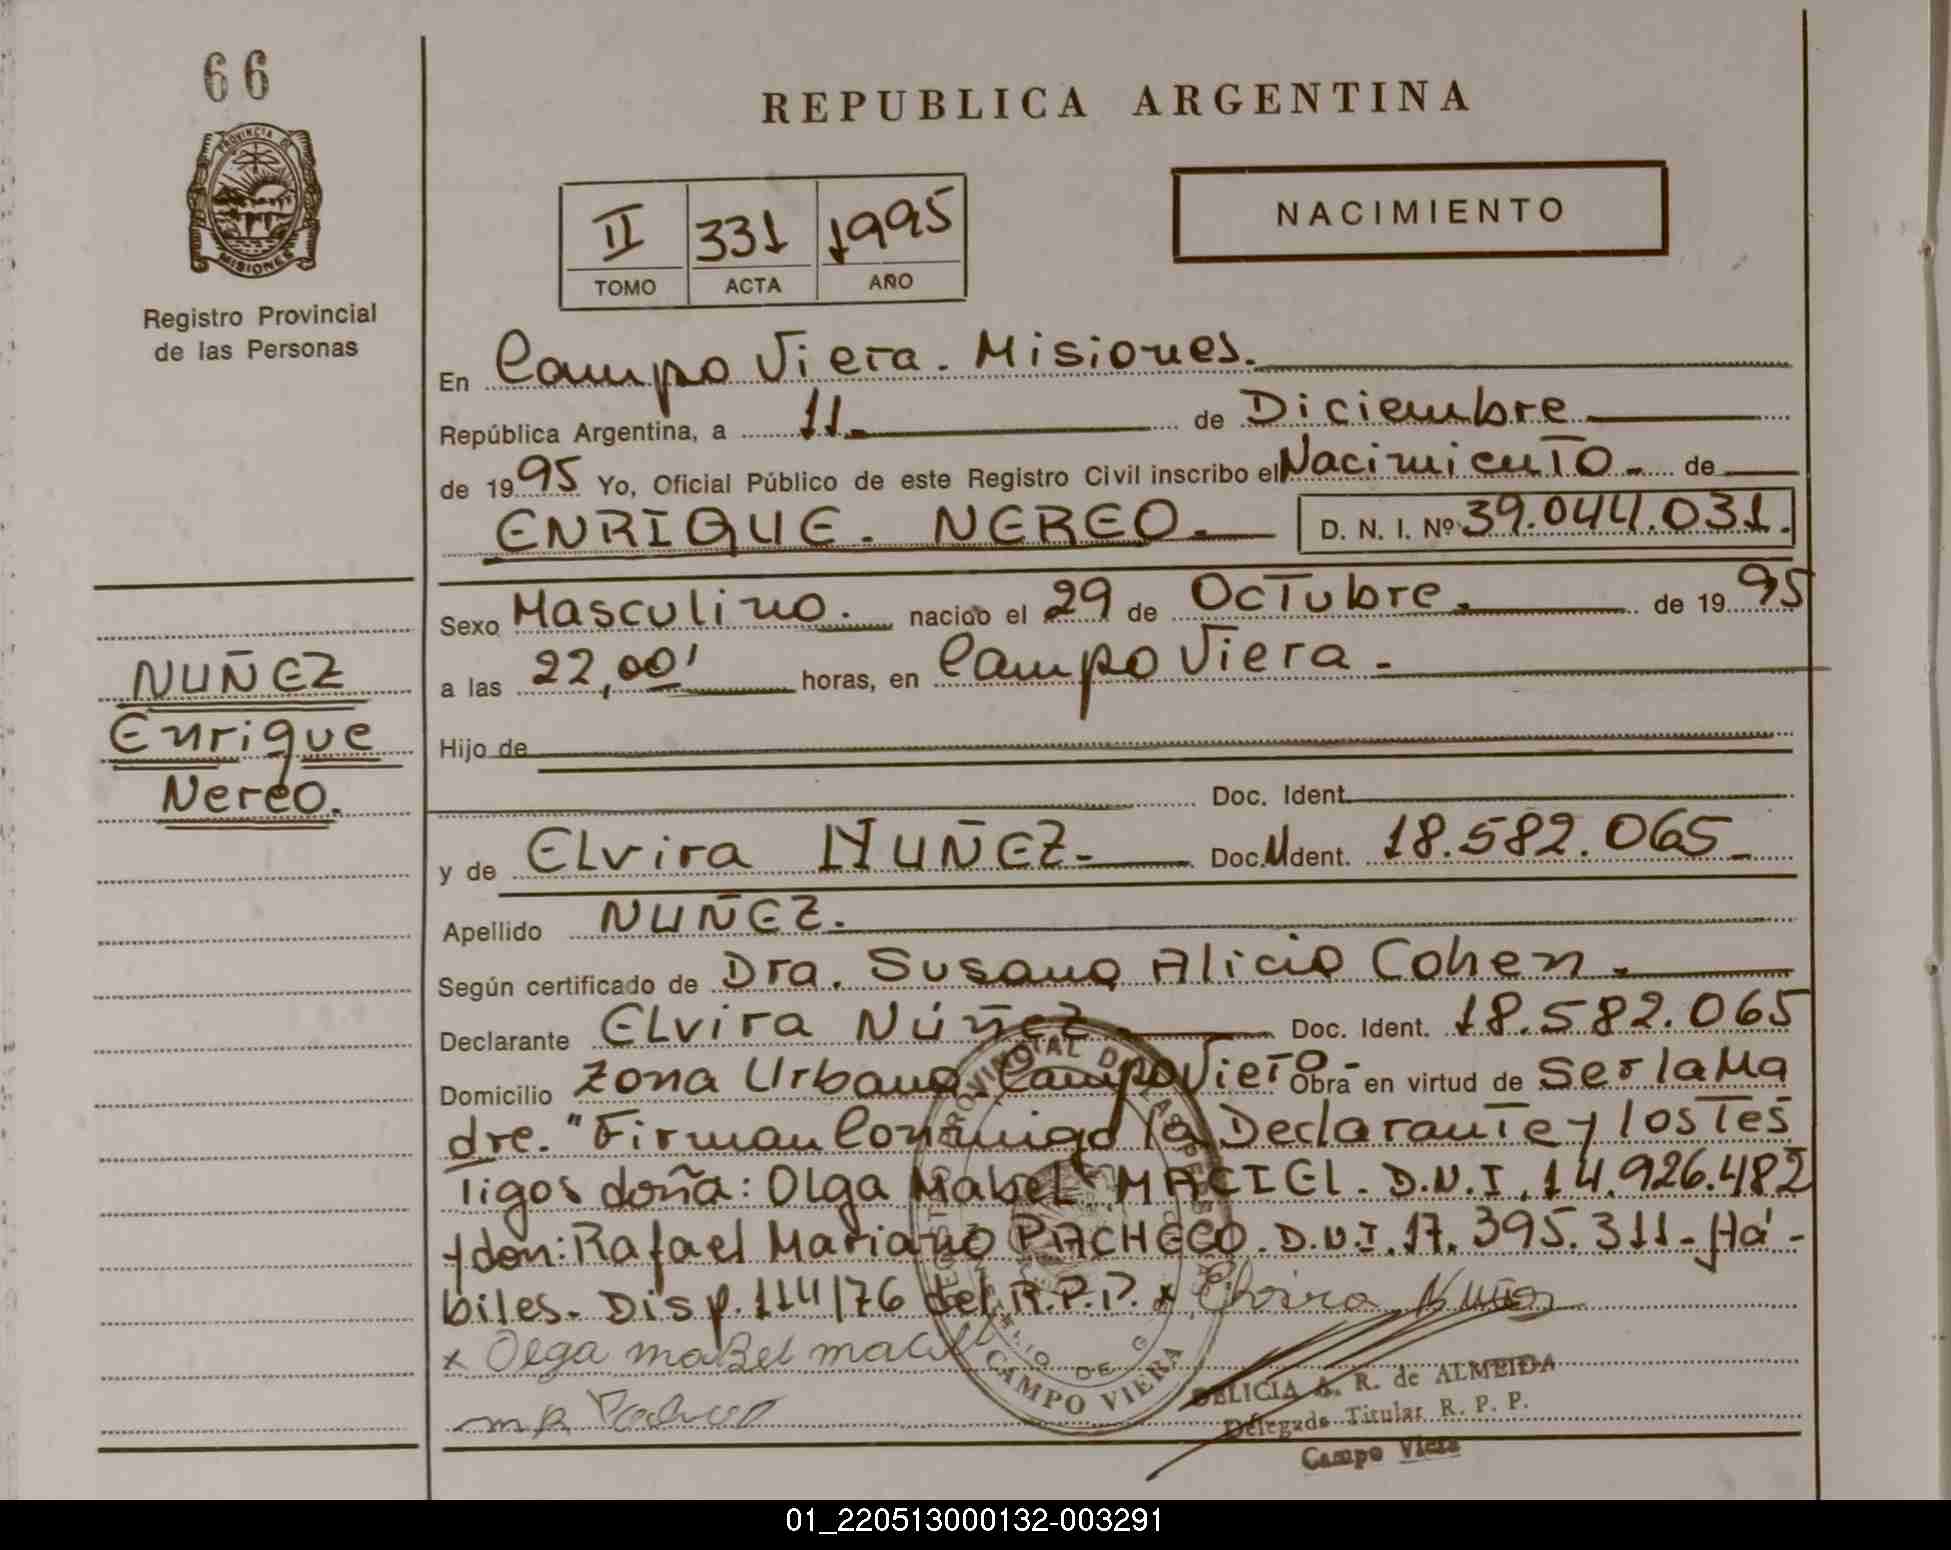 66
PROVINCIA DE
MISIONES
Registro Provincial
de las Personas
NUÑEZ
Enrique
Nereo.
REPUBLICA ARGENTINA
II 331 1995
TOMO ACTA AÑO
NACIMIENTO
En Campo Viera. Misiones.
República Argentina, a 11. de Diciembre
de 1995 Yo, Oficial Público de este Registro Civil inscribo el Nacimiento de
ENRIQUE. NEREO. D. N. I. Nº 39.044.031.
Sexo Masculino. nacido el 29 de Octubre. de 1995
a las 22,00' horas, en Campo Viera.
Hijo de
Doc. Ident.
y de Elvira NUÑEZ- Doc. Ident. 18.582.065
Apellido NUÑEZ.
Según certificado de Dra. Susana Alicia Cohen.
Declarante Elvira Núñez Doc. Ident. 18.582.065
Domicilio Zona Urbana Campo Viera Obra en virtud de Ser la Ma
dre. "Firman Conmigo la Declarante y los Tes
tigos doña: Olga Mabel MACIEL. D.N.I. 14.926.482
y don: Rafael Mariano PACHECO. D.N.I. 17.395.311- Há-
biles. Disp. 114/76 del R.P.P. x Elvira Nuñez
x Olga maBel maciel
CAMPO VIERA
DELICIA A. R. de ALMEIDA
Delegada Titular R. P. P.
Campo Viera
01_220513000132-003291